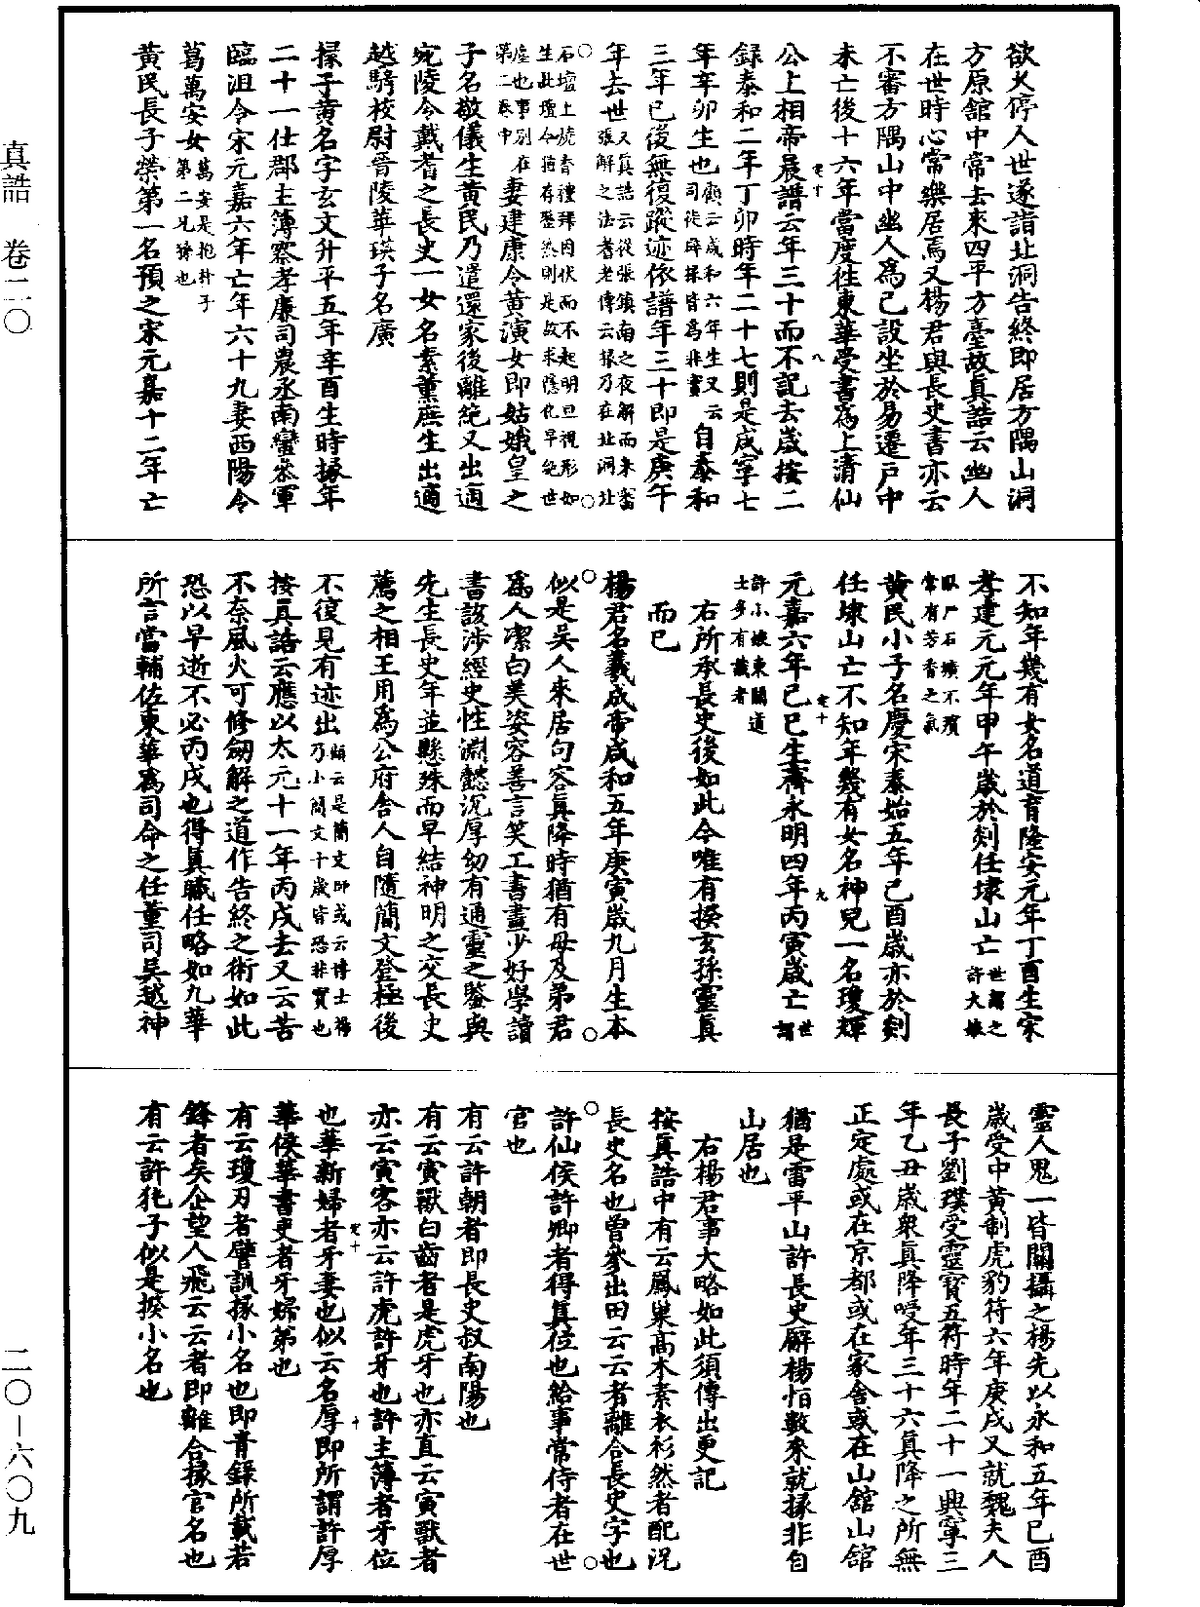 欲久停人世遂詣北洞告終即居方隅山洞
方原館中常去來四平方臺故真誥云幽人
在世時心常樂居焉又楊君與長史書亦云
不審方隅山中幽人為已設坐於易遷戶中
未亡後十六年當度往東華受書為上清仙
公上相帝晨譜云年三十而不記去歲按二
録泰和二年丁卯時年二十七則是咸寧七
年辛卯生也顧云咸和六年生又云司徒辟掾皆為非實自泰和
三年已後無復蹤迹依譜年三十即是庚午
年去世又真誥云從張鎮南之夜解而未審張解之法耆老傳云掾乃在北洞北
石壇上燒香禮拜因伏而不起明旦視形如生此壇今猶存歷然則是故求隱化早絶世
塵也事別在第二卷中妻建康令黃演女即姑娥皇之
子名敬儀生黃民乃遣還家後離絶又出適
宛陵令戴耆之長史一女名素薰庶生出適
越騎校尉晉陵華瑛子名廣
掾子黃名字玄文升平五年辛酉生時掾年
二十一仕郡主簿察孝廉司農丞南蠻叅軍
臨沮令宋元嘉六年亡年六十九妻西陽令
葛萬安女萬安是抱朴子第二兄孫也
黃民長子榮第一名預之宋元嘉十二年亡
不知年幾有女名道育隆安元年丁酉生宋
孝建元元年甲午歲於剡任埭山亡世謂之許大娘
臥尸石壙不殯常有芳香之氣
黃民小子名慶宋泰始五年己酉歲亦於剡
任埭山亡不知年幾有女名神兒一名瓊輝
元嘉六年己巳生齊永明四年丙寅歲亡世謂
許小娘東關道士多有識者
右所承長史後如此今唯有揆玄孫靈真
而已
楊君名羲成帝咸和五年庚寅歲九月生本
似是吳人來居句容真降時猶有母及弟君
為人潔白美姿容善言笑工書畫少好學讀
書該涉經史性淵懿沉厚幼有通靈之鑒與
先生長史年並懸殊而早結神明之交長史
薦之相王用為公府舍人自隨簡文登極後
不復見有迹出顧云是簡文師或云博士楊乃小簡文十歲皆恐非實也
按真誥云應以太元十一年丙戌去又云若
不奈風火可修劒解之道作告終之術如此
恐以早逝不必丙戌也得真職任略如九華
所言當輔佐東華為司命之任董司吳越神
靈人鬼一皆關攝之楊先以永和五年己酉
歲受中黃制虎豹符六年庚戌又就魏夫人
長子劉璞受靈寶五符時年二十一興寧三
年乙丑歲衆真降受年三十六真降之所無
正定處或在京都或在家舍或在山館山館
猶是雷平山許長史廨楊恒數來就掾非自
山居也
右楊君事大略如此須傳出更記
按真誥中有云鳳巢高木素衣衫然者配況
長史名也曾參出田云云者離合長史字也
許仙侯許卿者得真位也給事常侍者在世
官也
有云許朝者即長史叔南陽也
有云寅獸白齒者是虎牙也亦直云寅獸者
亦云寅客亦云許虎許牙也許主簿者牙位
也華新婦者牙妻也似云名厚即所謂許厚
華侯華書吏者牙婦弟也
有云瓊刃者譬訓掾小名也即青録所載若
鋒者矣企望人飛云云者即離合掾官名也
有云許牝子似是揆小名也
真誥 卷二〇
二〇—六〇九